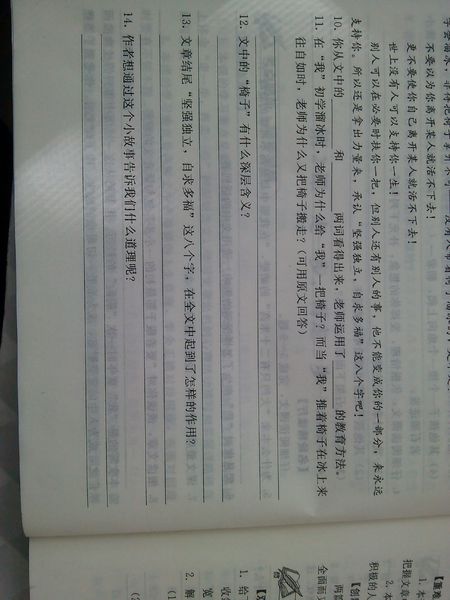 不要以为你离开某人就活不下去！
更不要使你自己离开某人就活不下去！
世上没有人可以支持你一生！
别人可以在必要时扶你一把，但别人还有别人的事，他不能变成你的一部分，来永远
支持你。所以还是拿出力量来，承认“坚强独立，自求多福”这八个字吧！
10. 你从文中的 和 两词看得出来，老师运用了 的教育方法。
11. 在“我”初学溜冰时，老师为什么给“我”一把椅子？而当“我”推着椅子在冰上来
往自如时，老师为什么又把椅子搬走？（可用原文回答）
12. 文中的“椅子”有什么深层含义？
13. 文章结尾“坚强独立，自求多福”这八个字，在全文中起到了怎样的作用？
14. 作者想通过这个小故事告诉我们什么道理呢？
1. 本
把握文章
2. 本
积极的人
【创
两篇
全面而
1. 给
收
宽
2. 解
(1
(2